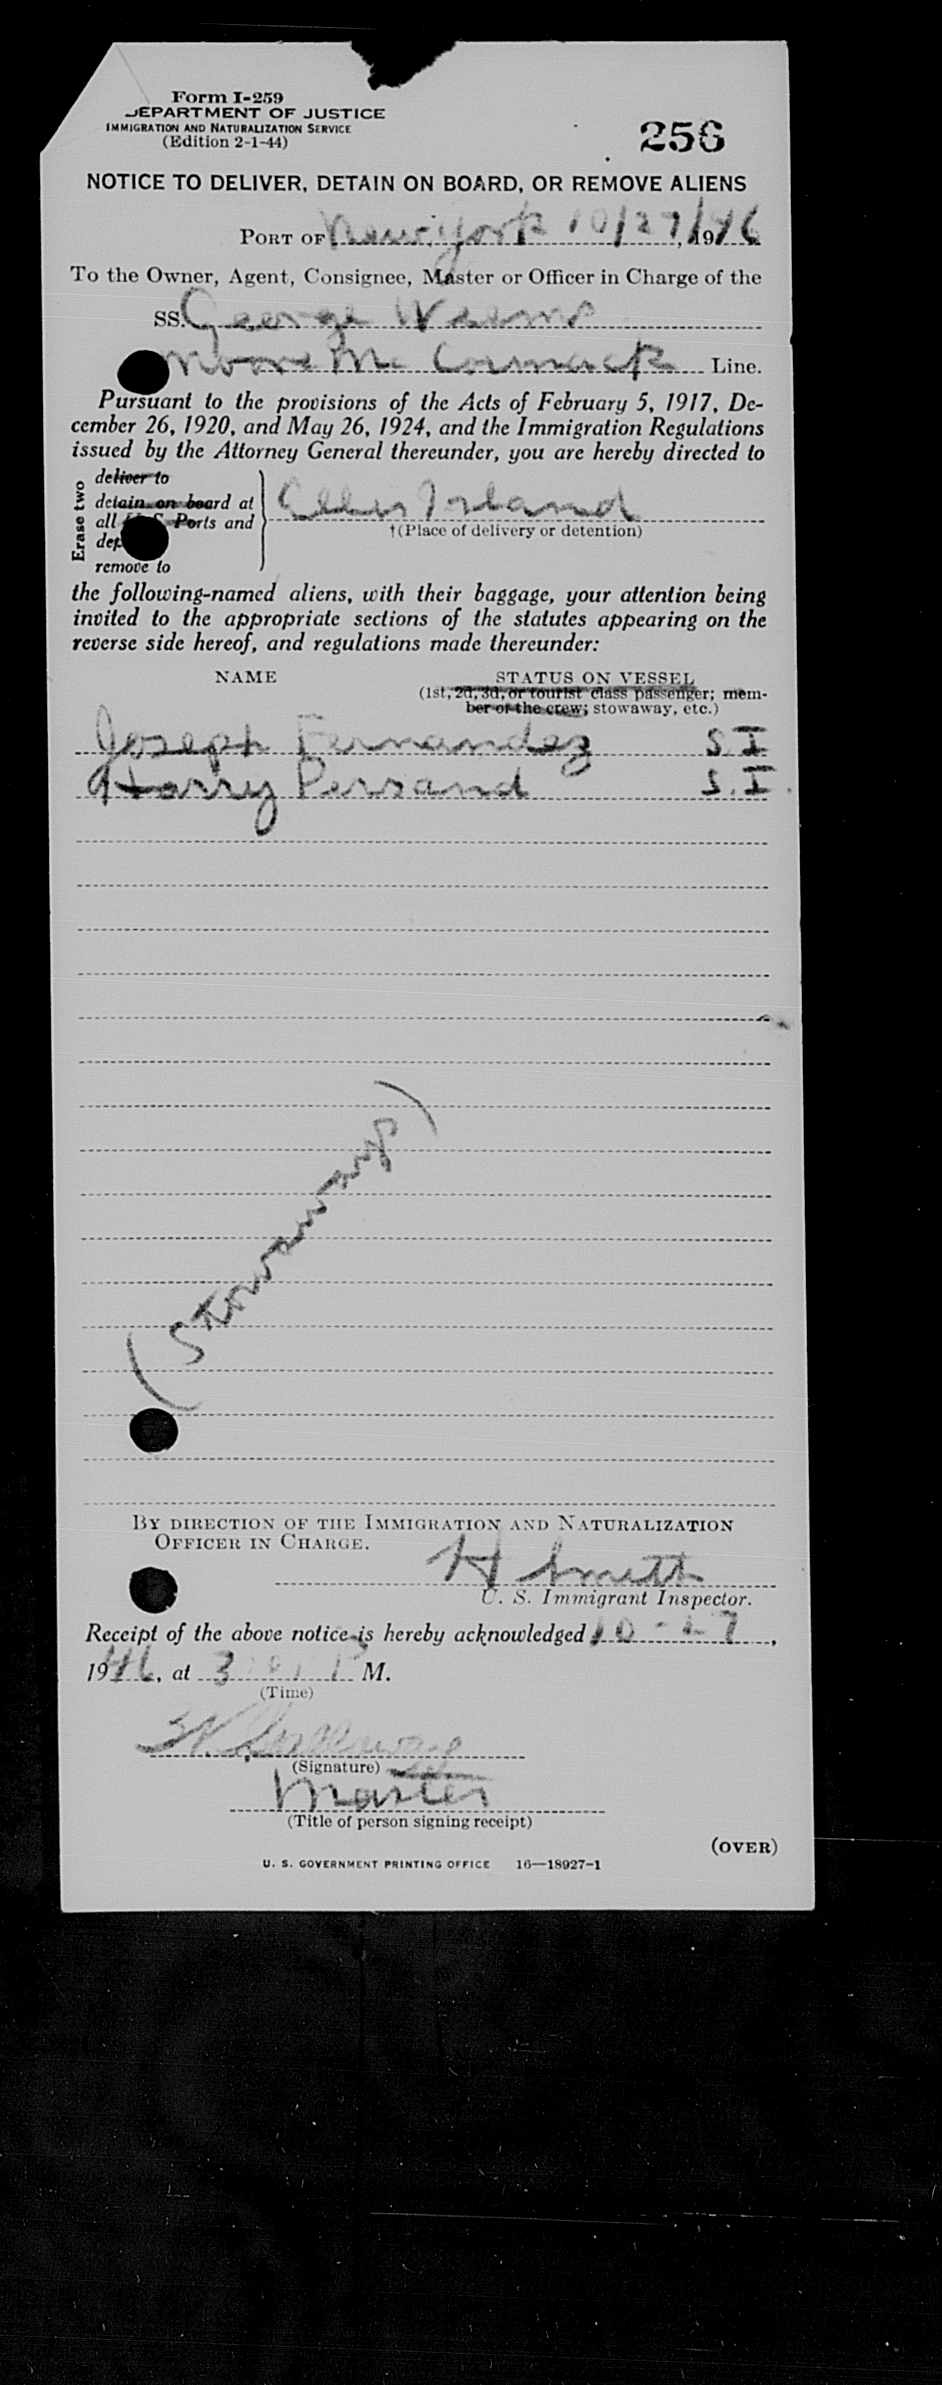 Form I-259
DEPARTMENT OF JUSTICE
IMMIGRATION AND NATURALIZATION SERVICE
(Edition 2-1-44)
256
NOTICE TO DELIVER, DETAIN ON BOARD, OR REMOVE ALIENS
PORT OF New York 10/27, 1946
To the Owner, Agent, Consignee, Master or Officer in Charge of the
SS. George Weems
Moore Mc Cormack Line.
Pursuant to the provisions of the Acts of February 5, 1917, De-
cember 26, 1920, and May 26, 1924, and the Immigration Regulations
issued by the Attorney General thereunder, you are hereby directed to
Erase two
deliver to
detain on board at
all U. S. Ports and
dep
remove to
Ellis Island
†(Place of delivery or detention)
the following-named aliens, with their baggage, your attention being
invited to the appropriate sections of the statutes appearing on the
reverse side hereof, and regulations made thereunder:
NAME STATUS ON VESSEL
(1st, 2d, 3d, or tourist class passenger; mem-
ber of the crew; stowaway, etc.)
Joseph Fernandez S.I
Harry Persand S.I.
(Stowaways)
BY DIRECTION OF THE IMMIGRATION AND NATURALIZATION
OFFICER IN CHARGE.
H Smith
U. S. Immigrant Inspector.
Receipt of the above notice is hereby acknowledged 10-27,
1946, at 3 P M.
(Time)
(Signature)
Master
(Title of person signing receipt)
(OVER)
U. S. GOVERNMENT PRINTING OFFICE 16—18927-1